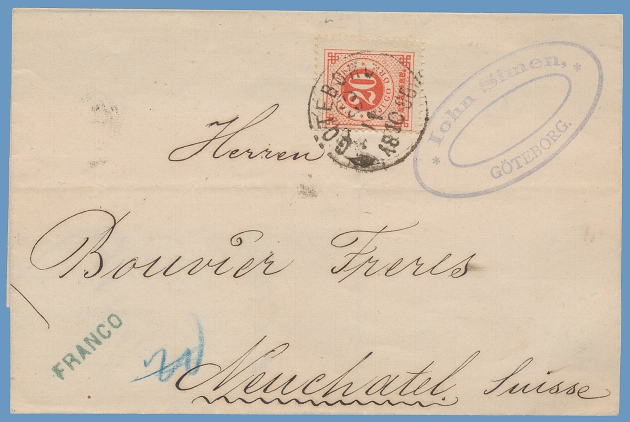 20
GÖTEBO
* Iohn Simen, *
GÖTEBORG.
Herren
Bouvier Freres
FRANCO
Neuchatel Suisse